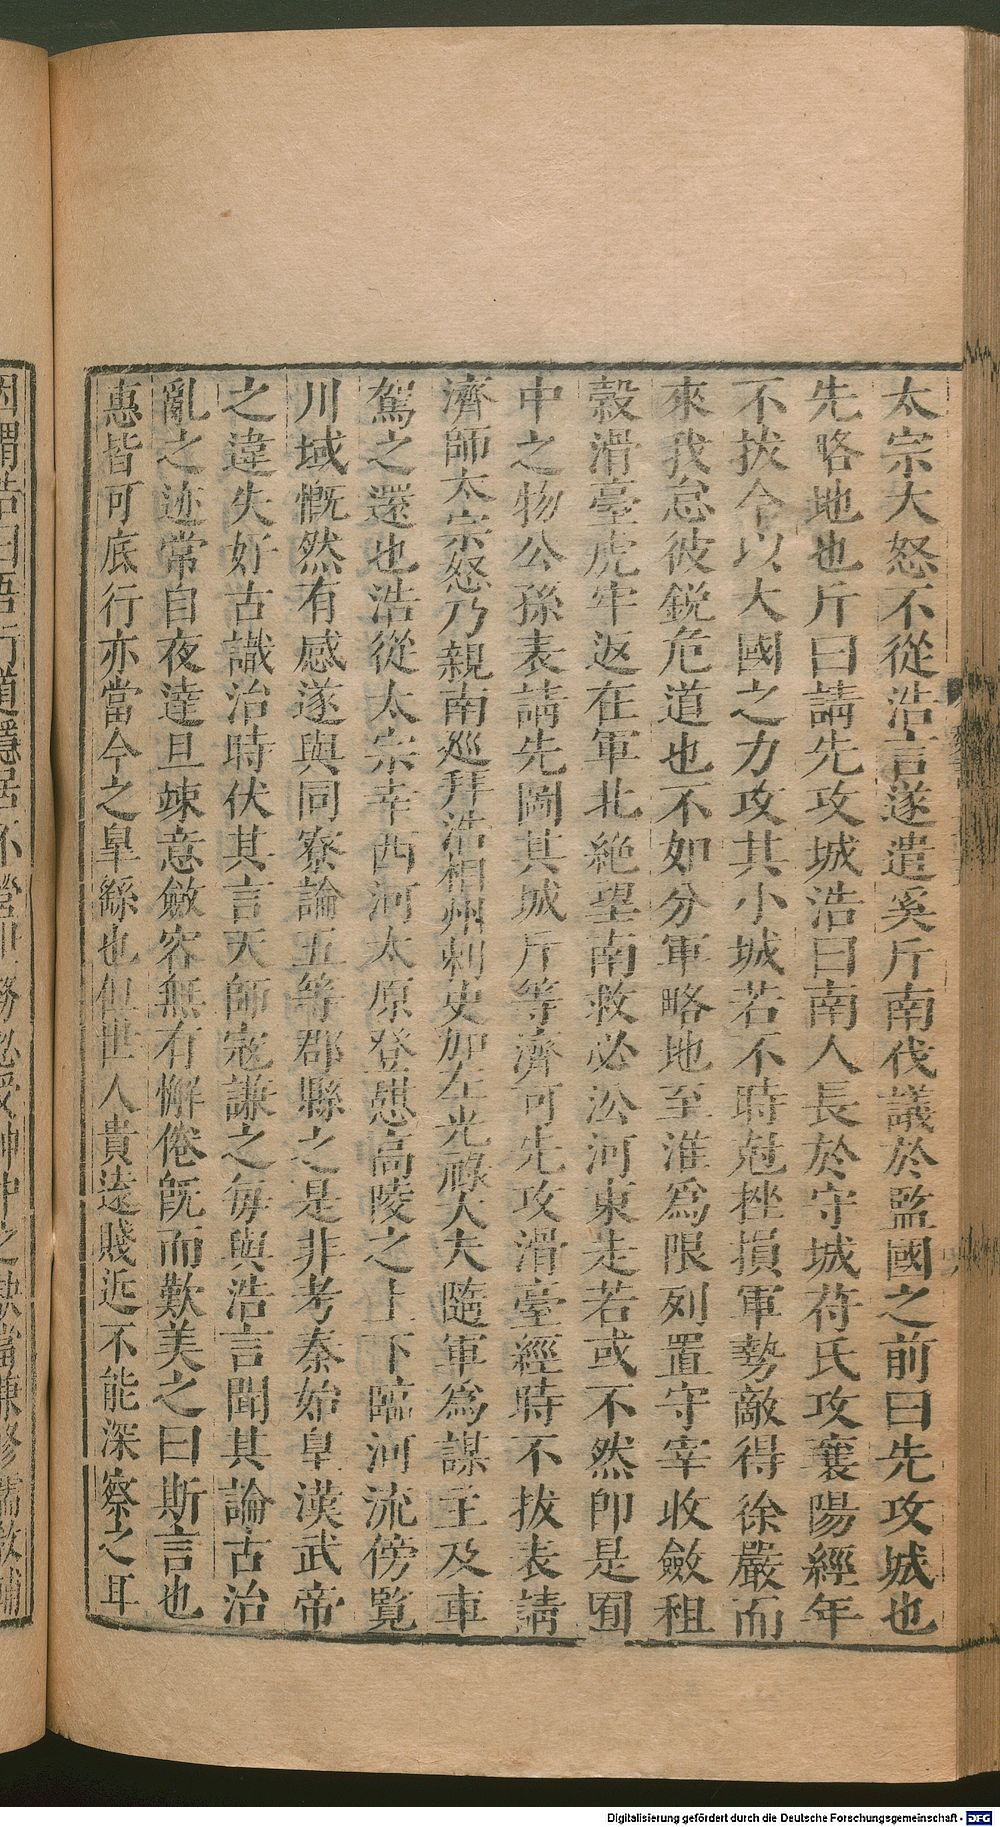 太宗大怒不從浩言遂遣奚斤南伐議於監國之前曰先攻城也
先略地也斤曰請先攻城浩曰南人長於守城苻氏攻襄陽經年
不拔今以大國之力攻其小城若不時剋挫損軍勢敵得徐嚴而
來我怠彼銳危道也不如分軍略地至淮為限列置守宰收斂租
穀滑臺虎牢返在軍北絶望南救必沿河東走若或不然即是囿
中之物公孫表請先圖其城斤等濟河先攻滑臺經時不拔表請
濟師太宗怒乃親南巡拜浩相州刺史加左光祿大夫隨軍為謀主及車
駕之還也浩從太宗幸西河太原登憇高陵之上下臨河流傍覽
川域慨然有感遂與同寮論五等郡縣之是非考秦始皇漢武帝
之違失好古識治時伏其言天師寇謙之每與浩言聞其論古治
亂之迹常自夜達旦竦意斂容無有懈倦旣而歎美之曰斯言也
惠皆可底行亦當今之皐繇也但世人貴遠賤近不能深察之耳
因謂浩曰吾行道隱居不營世務忽受神中之訣當兼修儒教輔
Digitalisierung gefördert durch die Deutsche Forschungsgemeinschaft - DFG